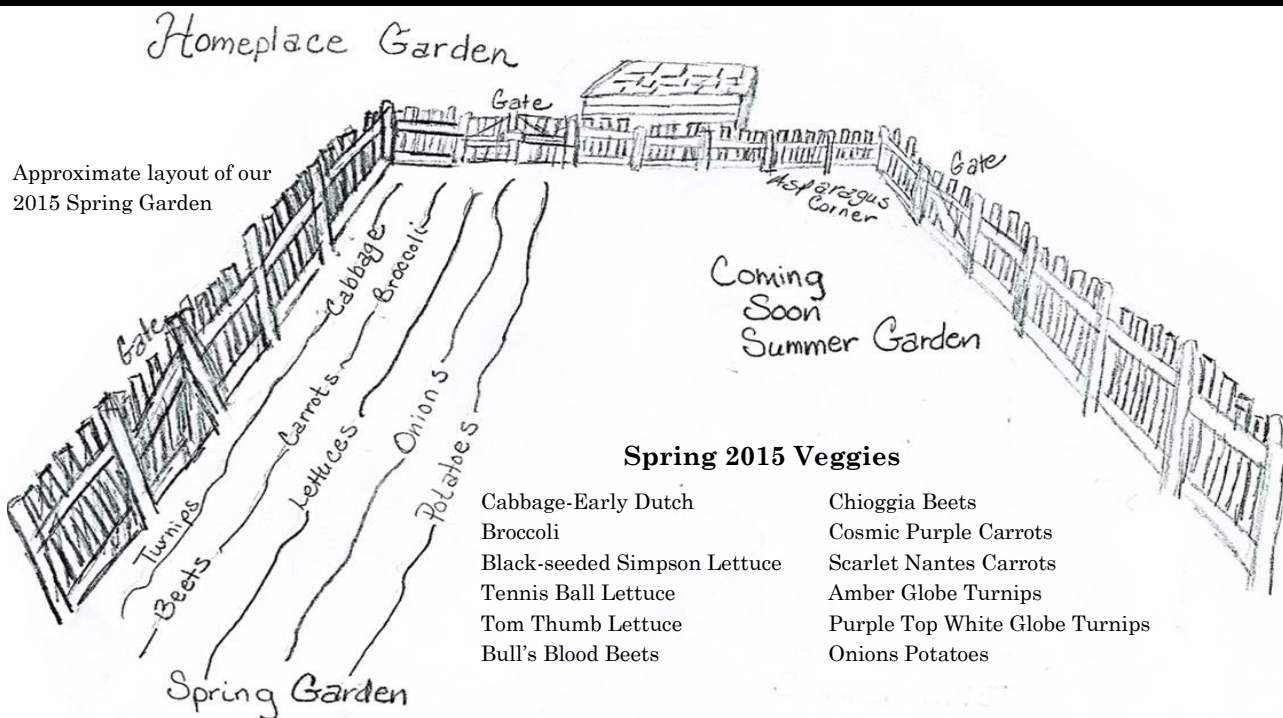 Homeplace Garden
Gate
Approximate layout of our
2015 Spring Garden
Gate
Asparagus
Corner
Cabbage
Broccoli
Coming
Soon
Summer Garden
Gate
Carrots
Onions
Lettuces
Potatoes
Turnips
Beets
Spring Garden
Spring 2015 Veggies
Cabbage-Early Dutch
Broccoli
Black-seeded Simpson Lettuce
Tennis Ball Lettuce
Tom Thumb Lettuce
Bull’s Blood Beets
Chioggia Beets
Cosmic Purple Carrots
Scarlet Nantes Carrots
Amber Globe Turnips
Purple Top White Globe Turnips
Onions Potatoes